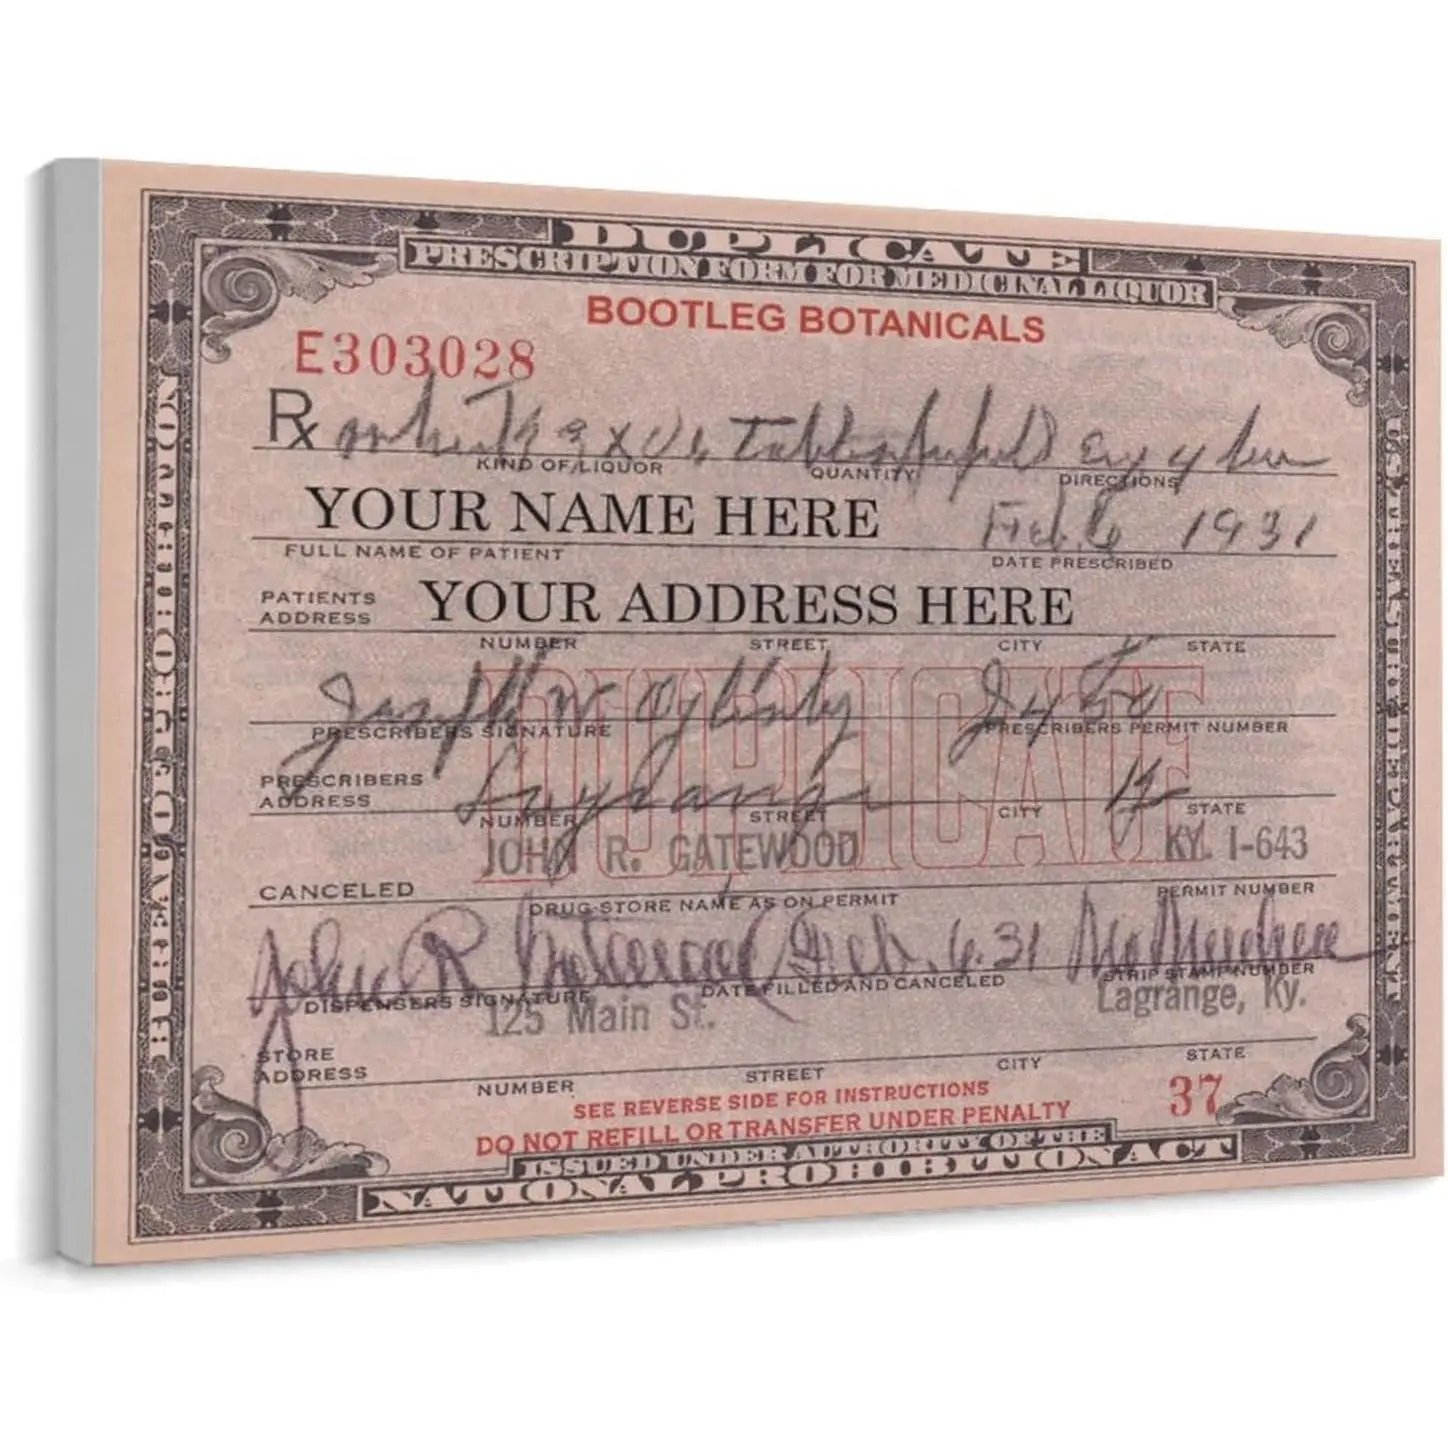 DUPLICATE
PRESCRIPTION FORM FOR MEDICINAL LIQUOR
BOOTLEG BOTANICALS
E303028
Rx
KIND OF LIQUOR QUANTITY DIRECTIONS
YOUR NAME HERE Feb. 6 1931
FULL NAME OF PATIENT DATE PRESCRIBED
PATIENTS ADDRESS YOUR ADDRESS HERE
NUMBER STREET CITY STATE
DUPLICATE
Joseph W
PRESCRIBERS SIGNATURE PRESCRIBERS PERMIT NUMBER
PRESCRIBERS ADDRESS Lagrange Ky
NUMBER STREET CITY STATE
JOHN R. GATEWOOD KY. I-643
CANCELED
DRUG STORE NAME AS ON PERMIT PERMIT NUMBER
John R Gatewood Feb. 6. 31 No Number
DISPENSERS SIGNATURE DATE FILLED AND CANCELED STRIP STAMP NUMBER
125 Main St. Lagrange, Ky.
STORE ADDRESS
NUMBER STREET CITY STATE
SEE REVERSE SIDE FOR INSTRUCTIONS 37
DO NOT REFILL OR TRANSFER UNDER PENALTY
ISSUED UNDER AUTHORITY OF THE
NATIONAL PROHIBITION ACT
BUREAU OF PROHIBITION